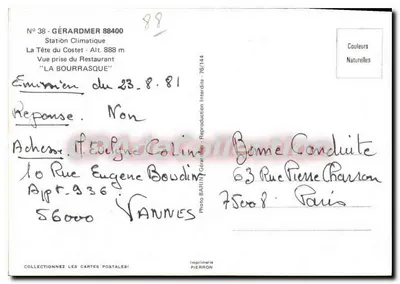 88
N° 38 - GÉRARDMER 88400
Station Climatique
La Tête du Costet - Alt. 888 m
Vue prise du Restaurant
"LA BOURRASQUE"
Couleurs
Naturelles
Emission du 23.8.81
Reponse. Non
Adresse. Evelyne Colin
10 Rue Eugene Boudin
Appt. 936.
56000 VANNES
Reproduction Interdite - 76/144
Bonne Conduite
63 Rue Pierre Charron
75008. Paris
COLLECTIONNEZ LES CARTES POSTALES!
Imprimerie
PIERRON